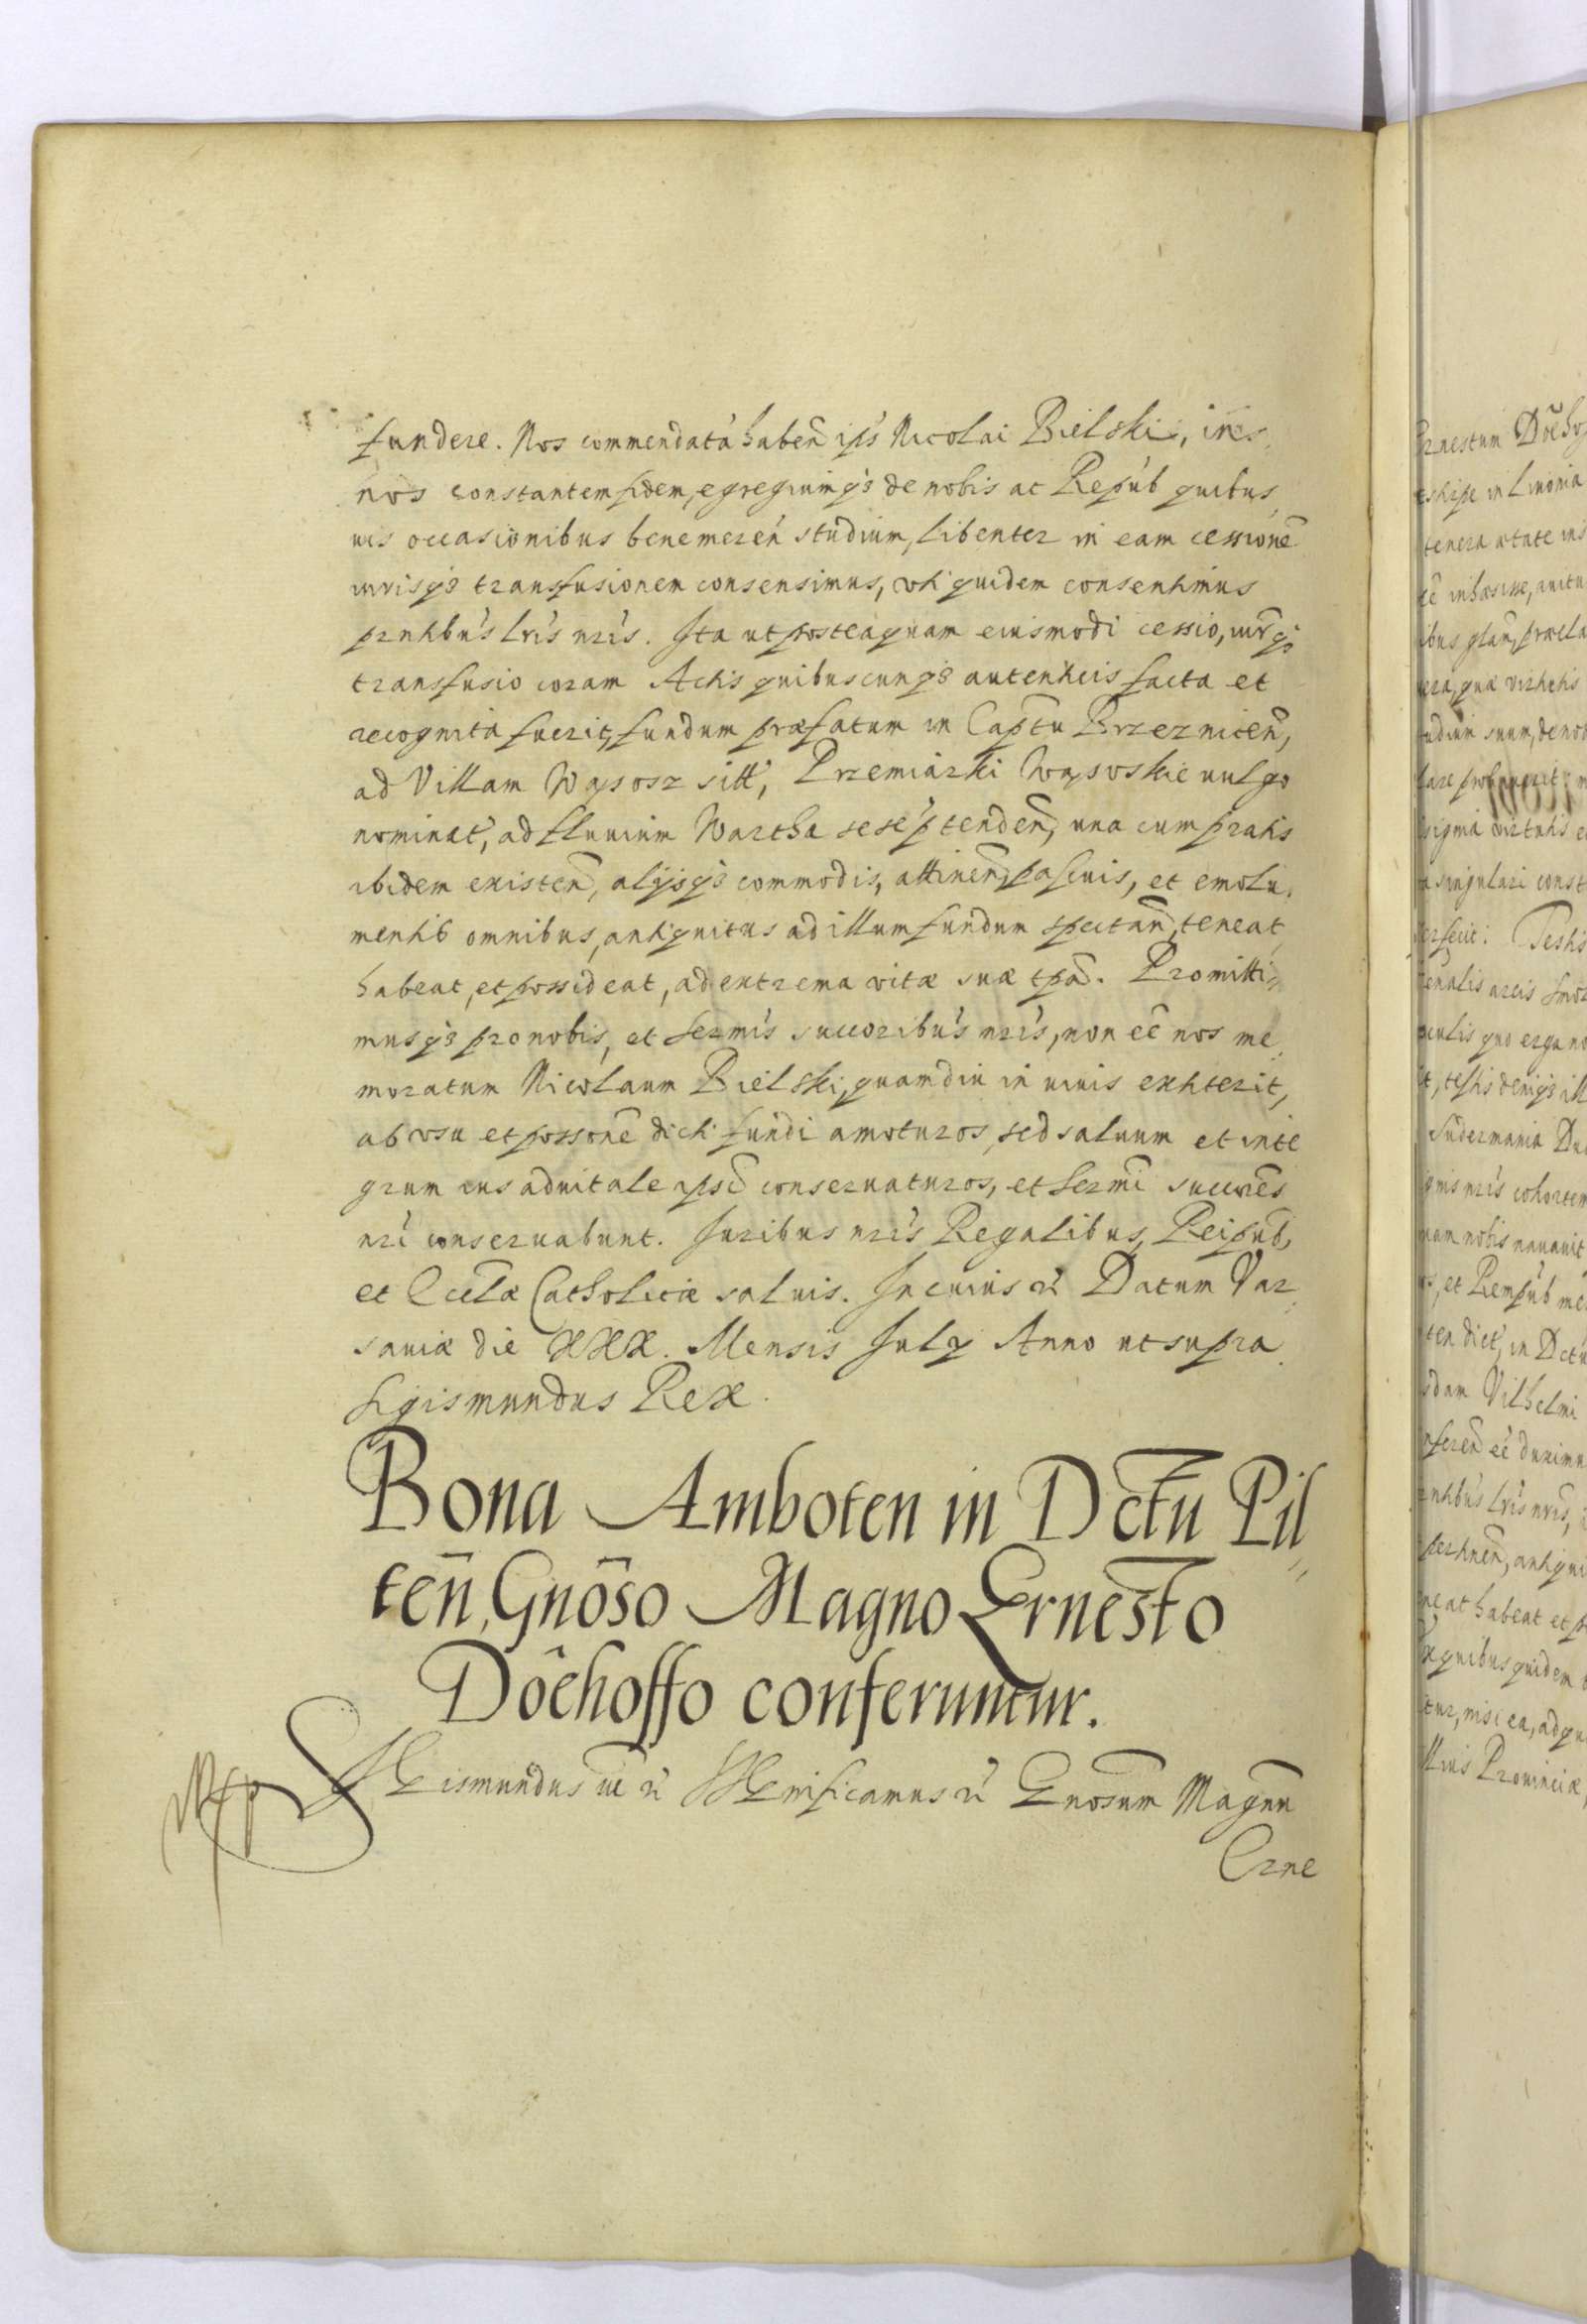 fundere. Nos commendatã habeñ ips Nicolai Bielski, in
nos constantem fidem, egregiumq; de nobis ac Repub quibus
uis occasionibus benemereñ studium, libenter in eam cessionẽ
iurisq; transfusionem consensimus, vti quidem consentimus
prntibus lris nris. Ita ut posteaquam eiusmodi cessio, iurq;
transfusio coram Actis quibuscunq; autenticis facta et
recognita fuerit, fundum præfatum in Captu Brzeznicen̄,
ad Villam Wąsosz sitt, Przemiarki Wąsoskie uulgo
nominat, ad fluuium Wartha sese ptendeñ, una cum pratis
ibidem existeñ, alijsq; commodis, attineñ, pascuis, et emolu
mentis omnibus, antiquitus ad illum fundum spectañ, teneat
habeat, et possideat, ad extrema vitæ suæ tpa. Promitti
musq; pro nobis, et Sermis succoribus nris, non eẽ nos me
moratum Nicolaum Bielski, quamdiu in uiuis extiterit,
ab vsu et possone dicti fundi amoturos, sed saluum et inte
grum ius aduitale ipsi conseruaturos, et Sermi succores
nri conseruabunt. Iuribus nris Regalibus, Reipub,
et Ecclæ Catholicæ saluis. In cuius rei Datum Var
sauiæ die XXX. Mensis July Anno ut supra
Sigismundus Rex.
Bona Amboten in Dctu Pil
teñ, Gnõso Magno Ernesto
Dõehoffo conferuntur.
SIgismundus III rc SIgnificamus rc Gnosum Magnũ
Erne
Ernestum
in Liuonia
Sudermaniæ
cohortem
nam nobis nauauit
et Rempub
Vilhelmi
habeat et
quibus quidem
Prouinciæ